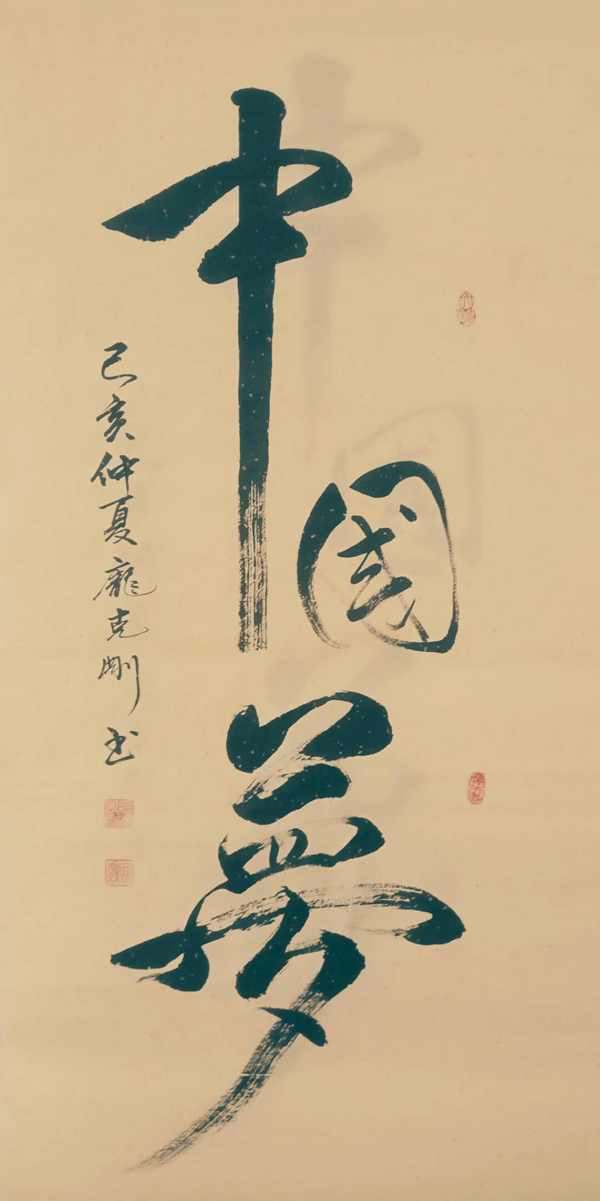 中國夢
己亥仲夏龐克剛书